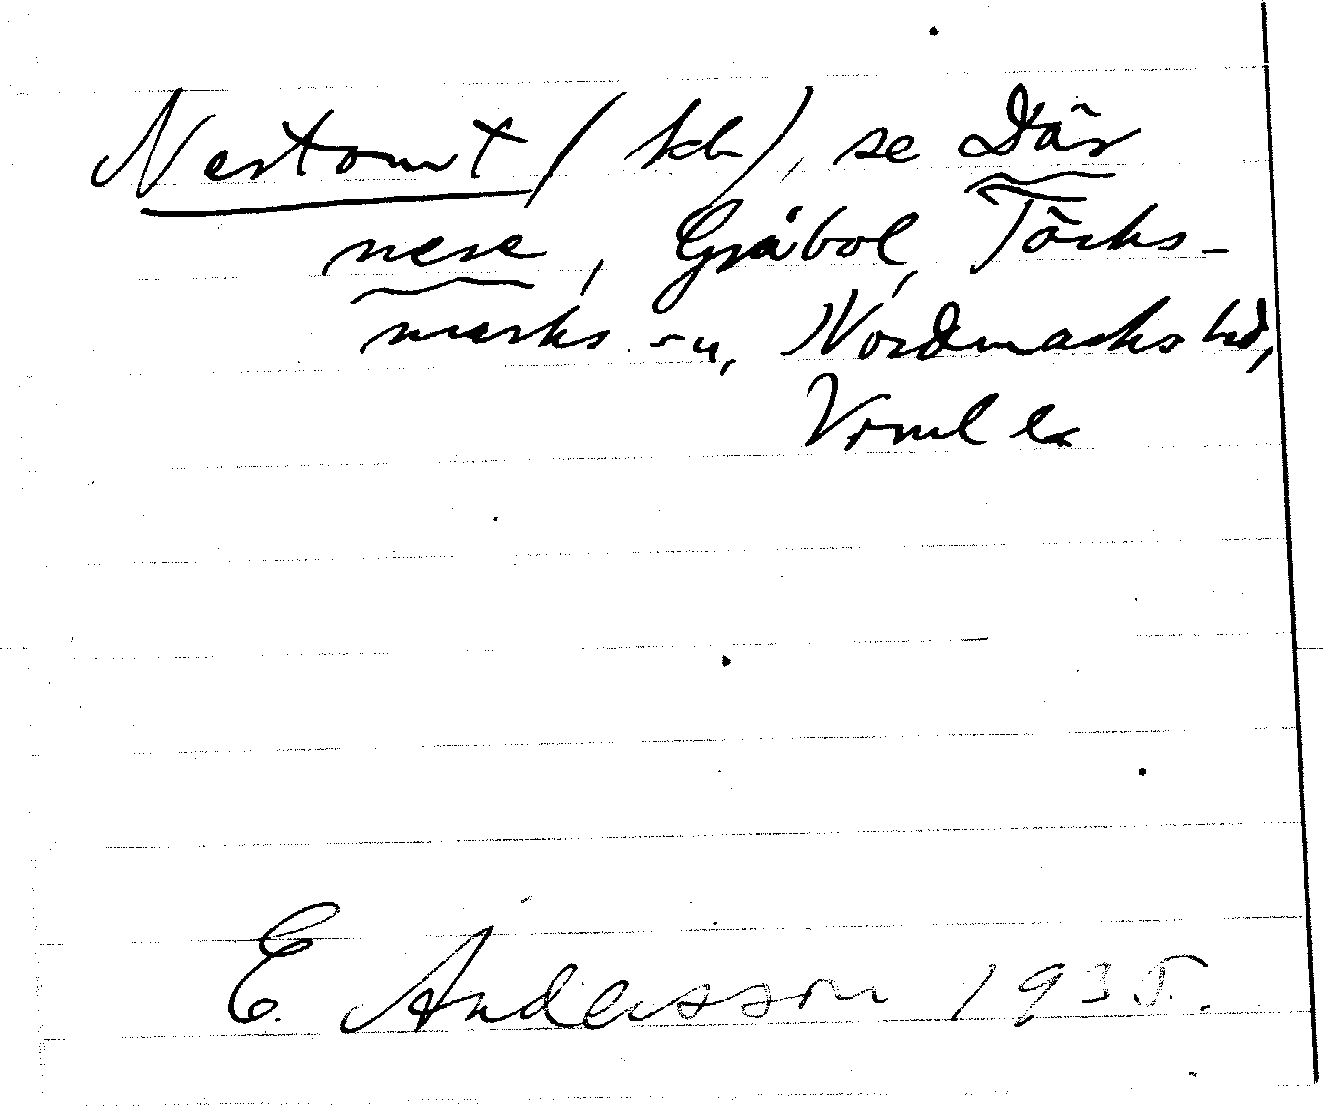 Nertomt (kb), se Där
nere, Gråbol, Töcks-
marks sn, Nordmarks hd,
Vrml l
E. Andersson 1935.